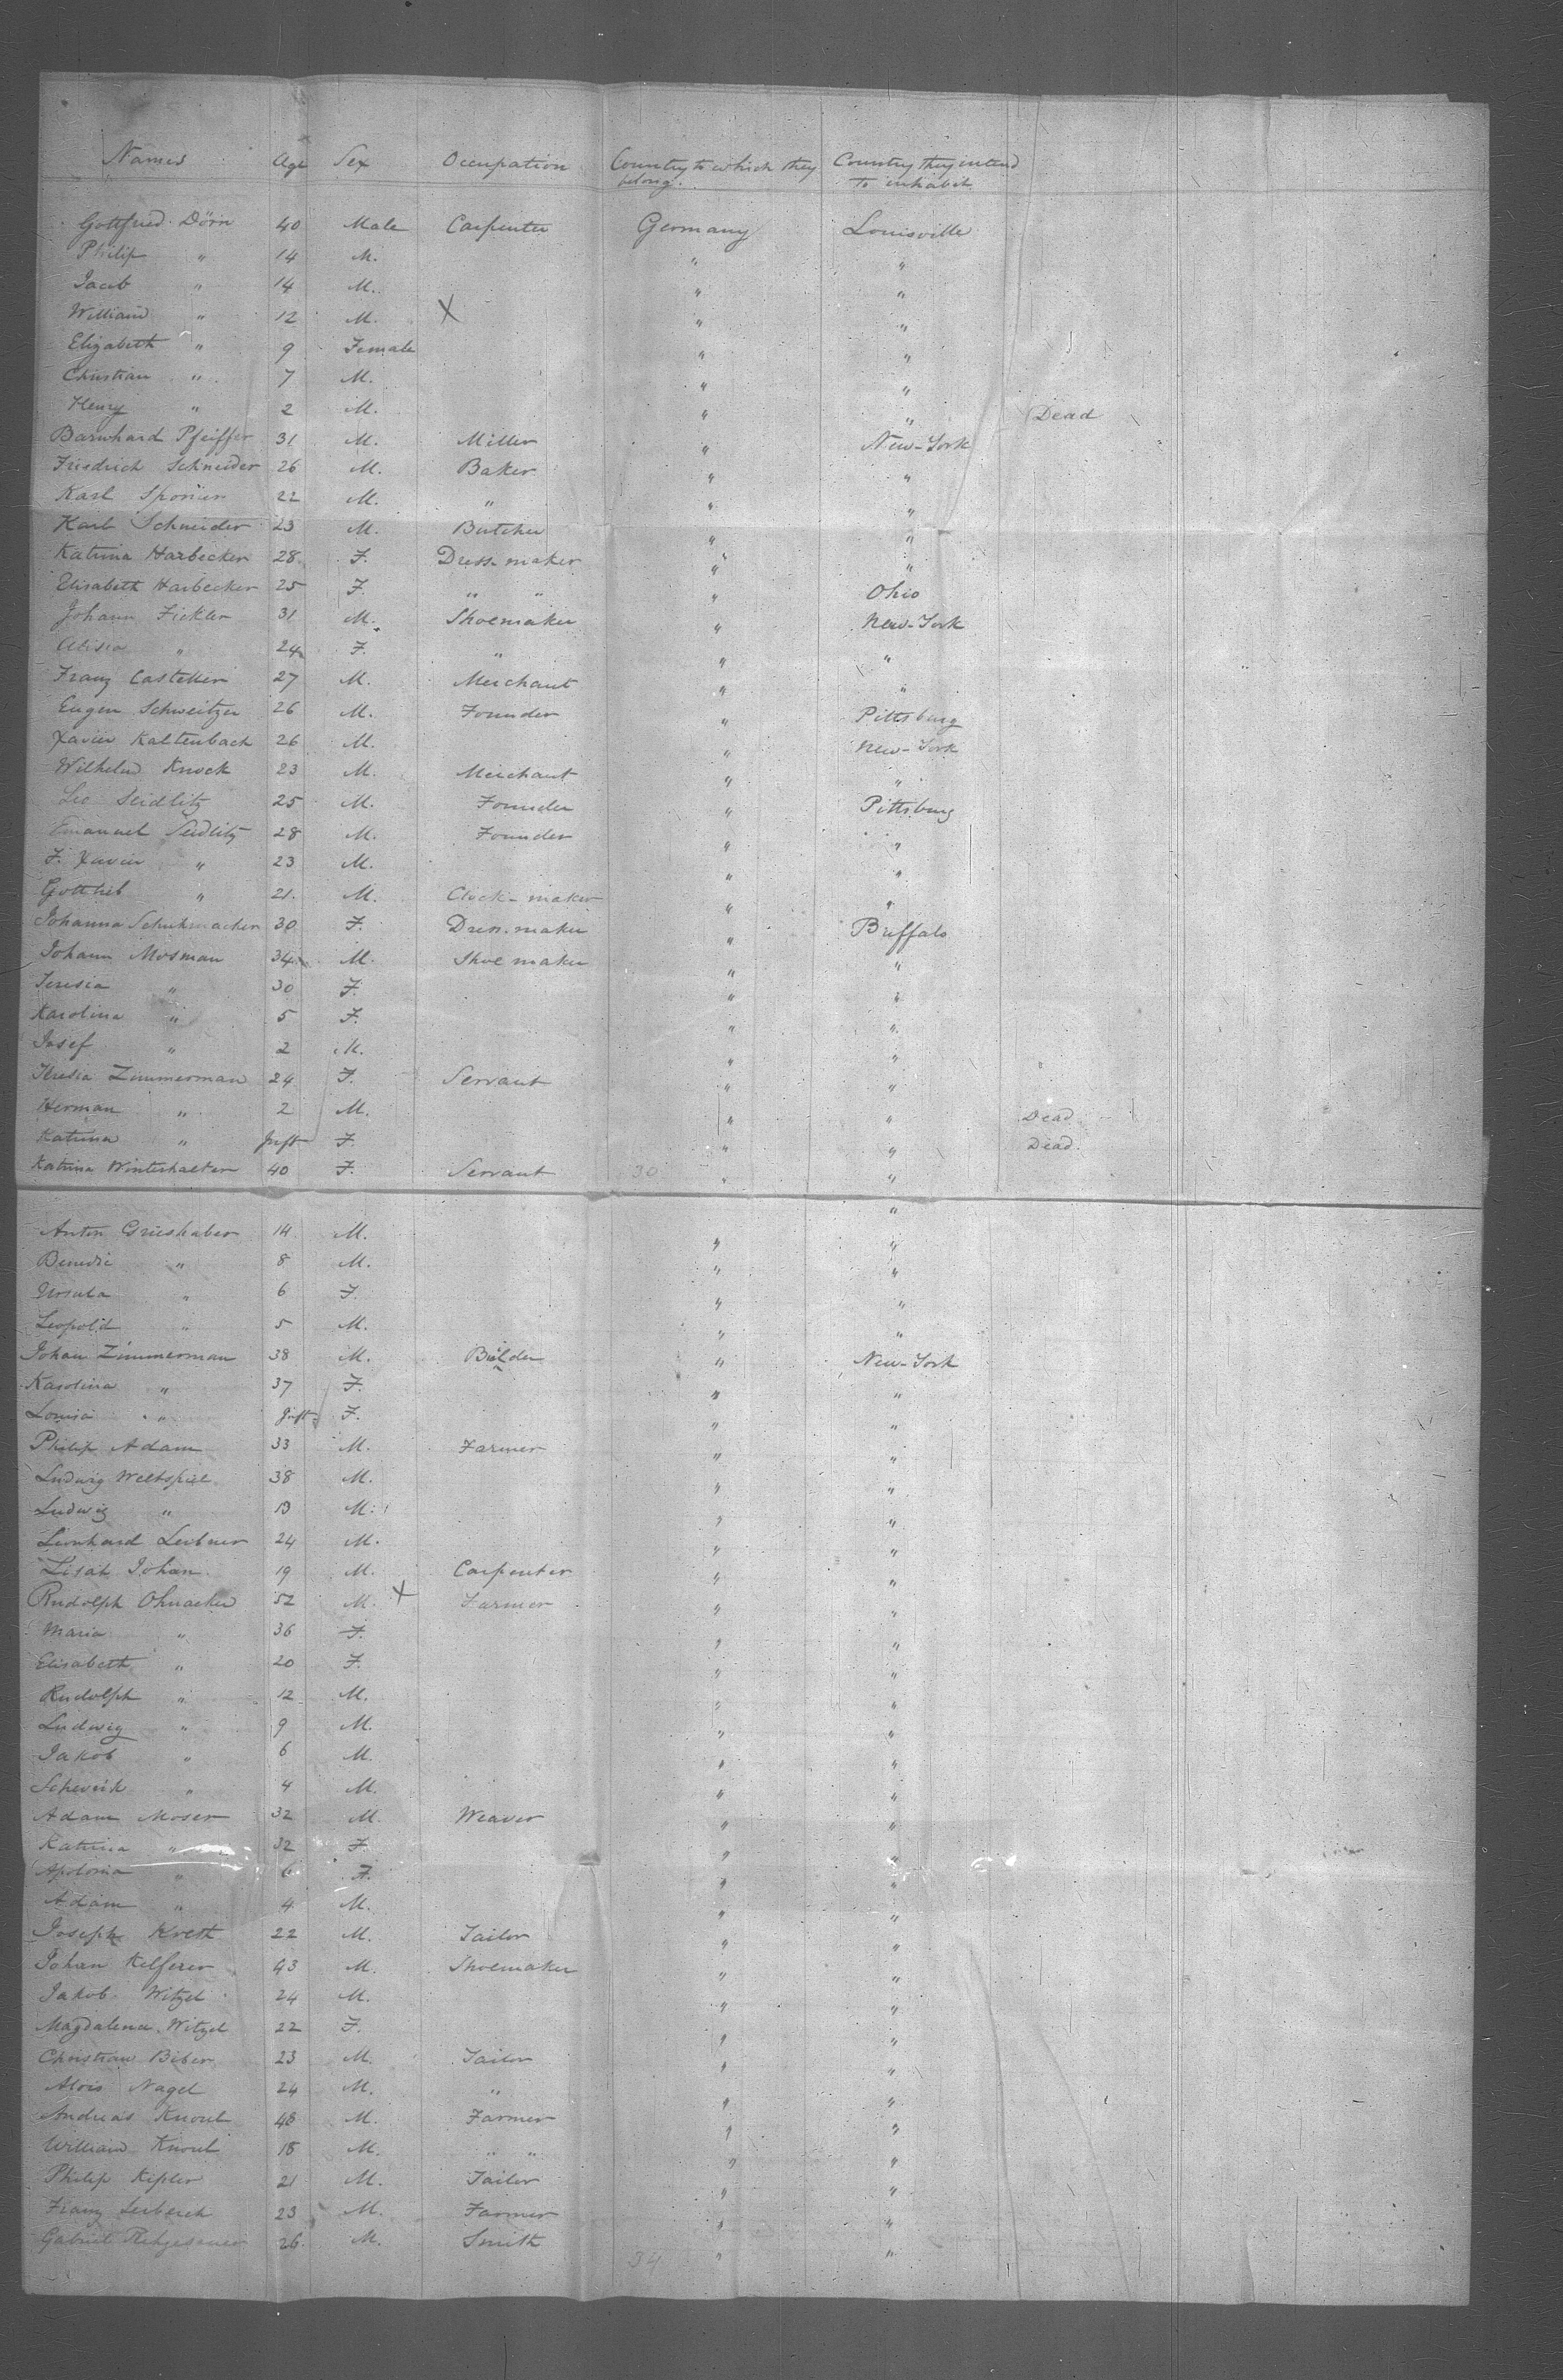 Names Age Sex Occupation Country to which they belong. Country they intend to inhabit
Gottfried Dörn 40 Male Carpenter Germany Louisville
Philip " 14 M. " "
Jacob " 14 M. " "
William " 12 M. X " "
Elizabeth " 9 Female " "
Christian " 7 M. " "
Henry " 2 M. " " Dead
Barnhard Pfeiffer 31 M. Miller " New-York
Friedrich Schneider 26 M. Baker " "
Karl Sponier 22 M. " " "
Karl Schneider 23 M. Butcher " "
Katrina Harbecker 28 F. Dress-maker " "
Elisabeth Harbecker 25 F. " " " Ohio
Johann Fickler 31 M. Shoemaker " New-York
" 24 F. " " "
Franz Casteller 27 M. Merchant " "
Eugen Schweitzer 26 M. Founder " Pittsburg
Xavier Kaltenbach 26 M. " New-York
Wilhelm Knock 23 M. Merchant " "
Leo Seidlitz 25 M. Founder " Pittsburg
Emanuel Seidlitz 28 M. Founder " "
F. Xavier " 23 M. " "
Gottlieb " 21. M. Clock-maker " "
Johanna Schuhmacker 30 F. Dress-maker " Buffalo
Johann Mosman 34 M. Shoe maker " "
Teresia " 30 F. " "
Karolina " 5 F. " "
Josef " 2 M. " "
Thresia Zimmerman 24 F. Servant " "
Herman " 2 M. " " Dead
Katrina " Inft F. " " Dead.
Katrina Winterhalter 40 F. Servant 30 " "
"
Anton Grieshaber 14 M. " "
" 8 M. " "
Ursula " 6 F. " "
Leopold " 5 M. " "
Johan Zimmerman 38 M. Bilder " New-York
Karolina " 37 F. " "
Louisa " Inft F. " "
Philip Adam 33 M. Farmer " "
Ludwig Weltspiel 38 M. " "
Ludwig " 13 M. " "
Leonhard Leibner 24 M. " "
Lisat Johan 19 M. Carpenter " "
Rudolph Ohnacker 52 M. X Farmer " "
Maria " 36 F. " "
Elisabeth " 20 F. " "
Rudolph " 12 M. " "
Ludwig " 9 M. " "
Jakob " 6 M. " "
" 4 M. " "
Adam Moser 32 M. Weaver " "
Katrina " 32 F. " "
Apolonia " 6 F. " "
Adam " 4 M. " "
Joseph Kreth 22 M. Tailor " "
Johan Kelferer 43 M. Shoemaker " "
Jakob Witzel 24 M. " "
Magdalena Witzel 22 F. " "
Christian Biber 23 M. Tailor " "
Alois Nagel 24 M. " " "
Andreas Knoul 48 M. Farmer " "
William Knoul 18 M. " " " "
Philip Kipler 21 M. Tailor " "
Franz 23 M. Farmer " "
Gabriel 26. M. Smith 34 " "